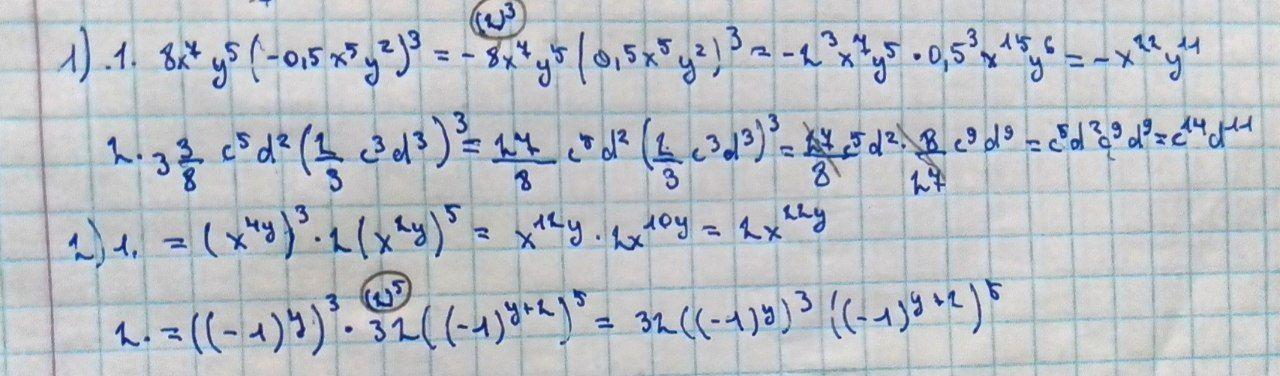 (2)³
1) .1. 8x⁷y⁵(-0,5x⁵y²)³ = -8x⁷y⁵(0,5x⁵y²)³ = -2³x⁷y⁵ · 0,5³x¹⁵y⁶ = -x²²y¹¹
2. 3 3/8 c⁵d²(2/3 c³d³)³ = 27/8 c⁵d²(2/3 c³d³)³ = 27/8 c⁵d² · 8/27 c⁹d⁹ = c⁵d²c⁹d⁹ = c¹⁴d¹¹
2) 1. = (x⁴ʸ)³ · 2(x²ʸ)⁵ = x¹²ʸ · 2x¹⁰ʸ = 2x²²ʸ
(2)⁵
2. = ((-1)ʸ)³ · 32((-1)ʸ⁺²)⁵ = 32((-1)ʸ)³ ((-1)ʸ⁺²)⁵